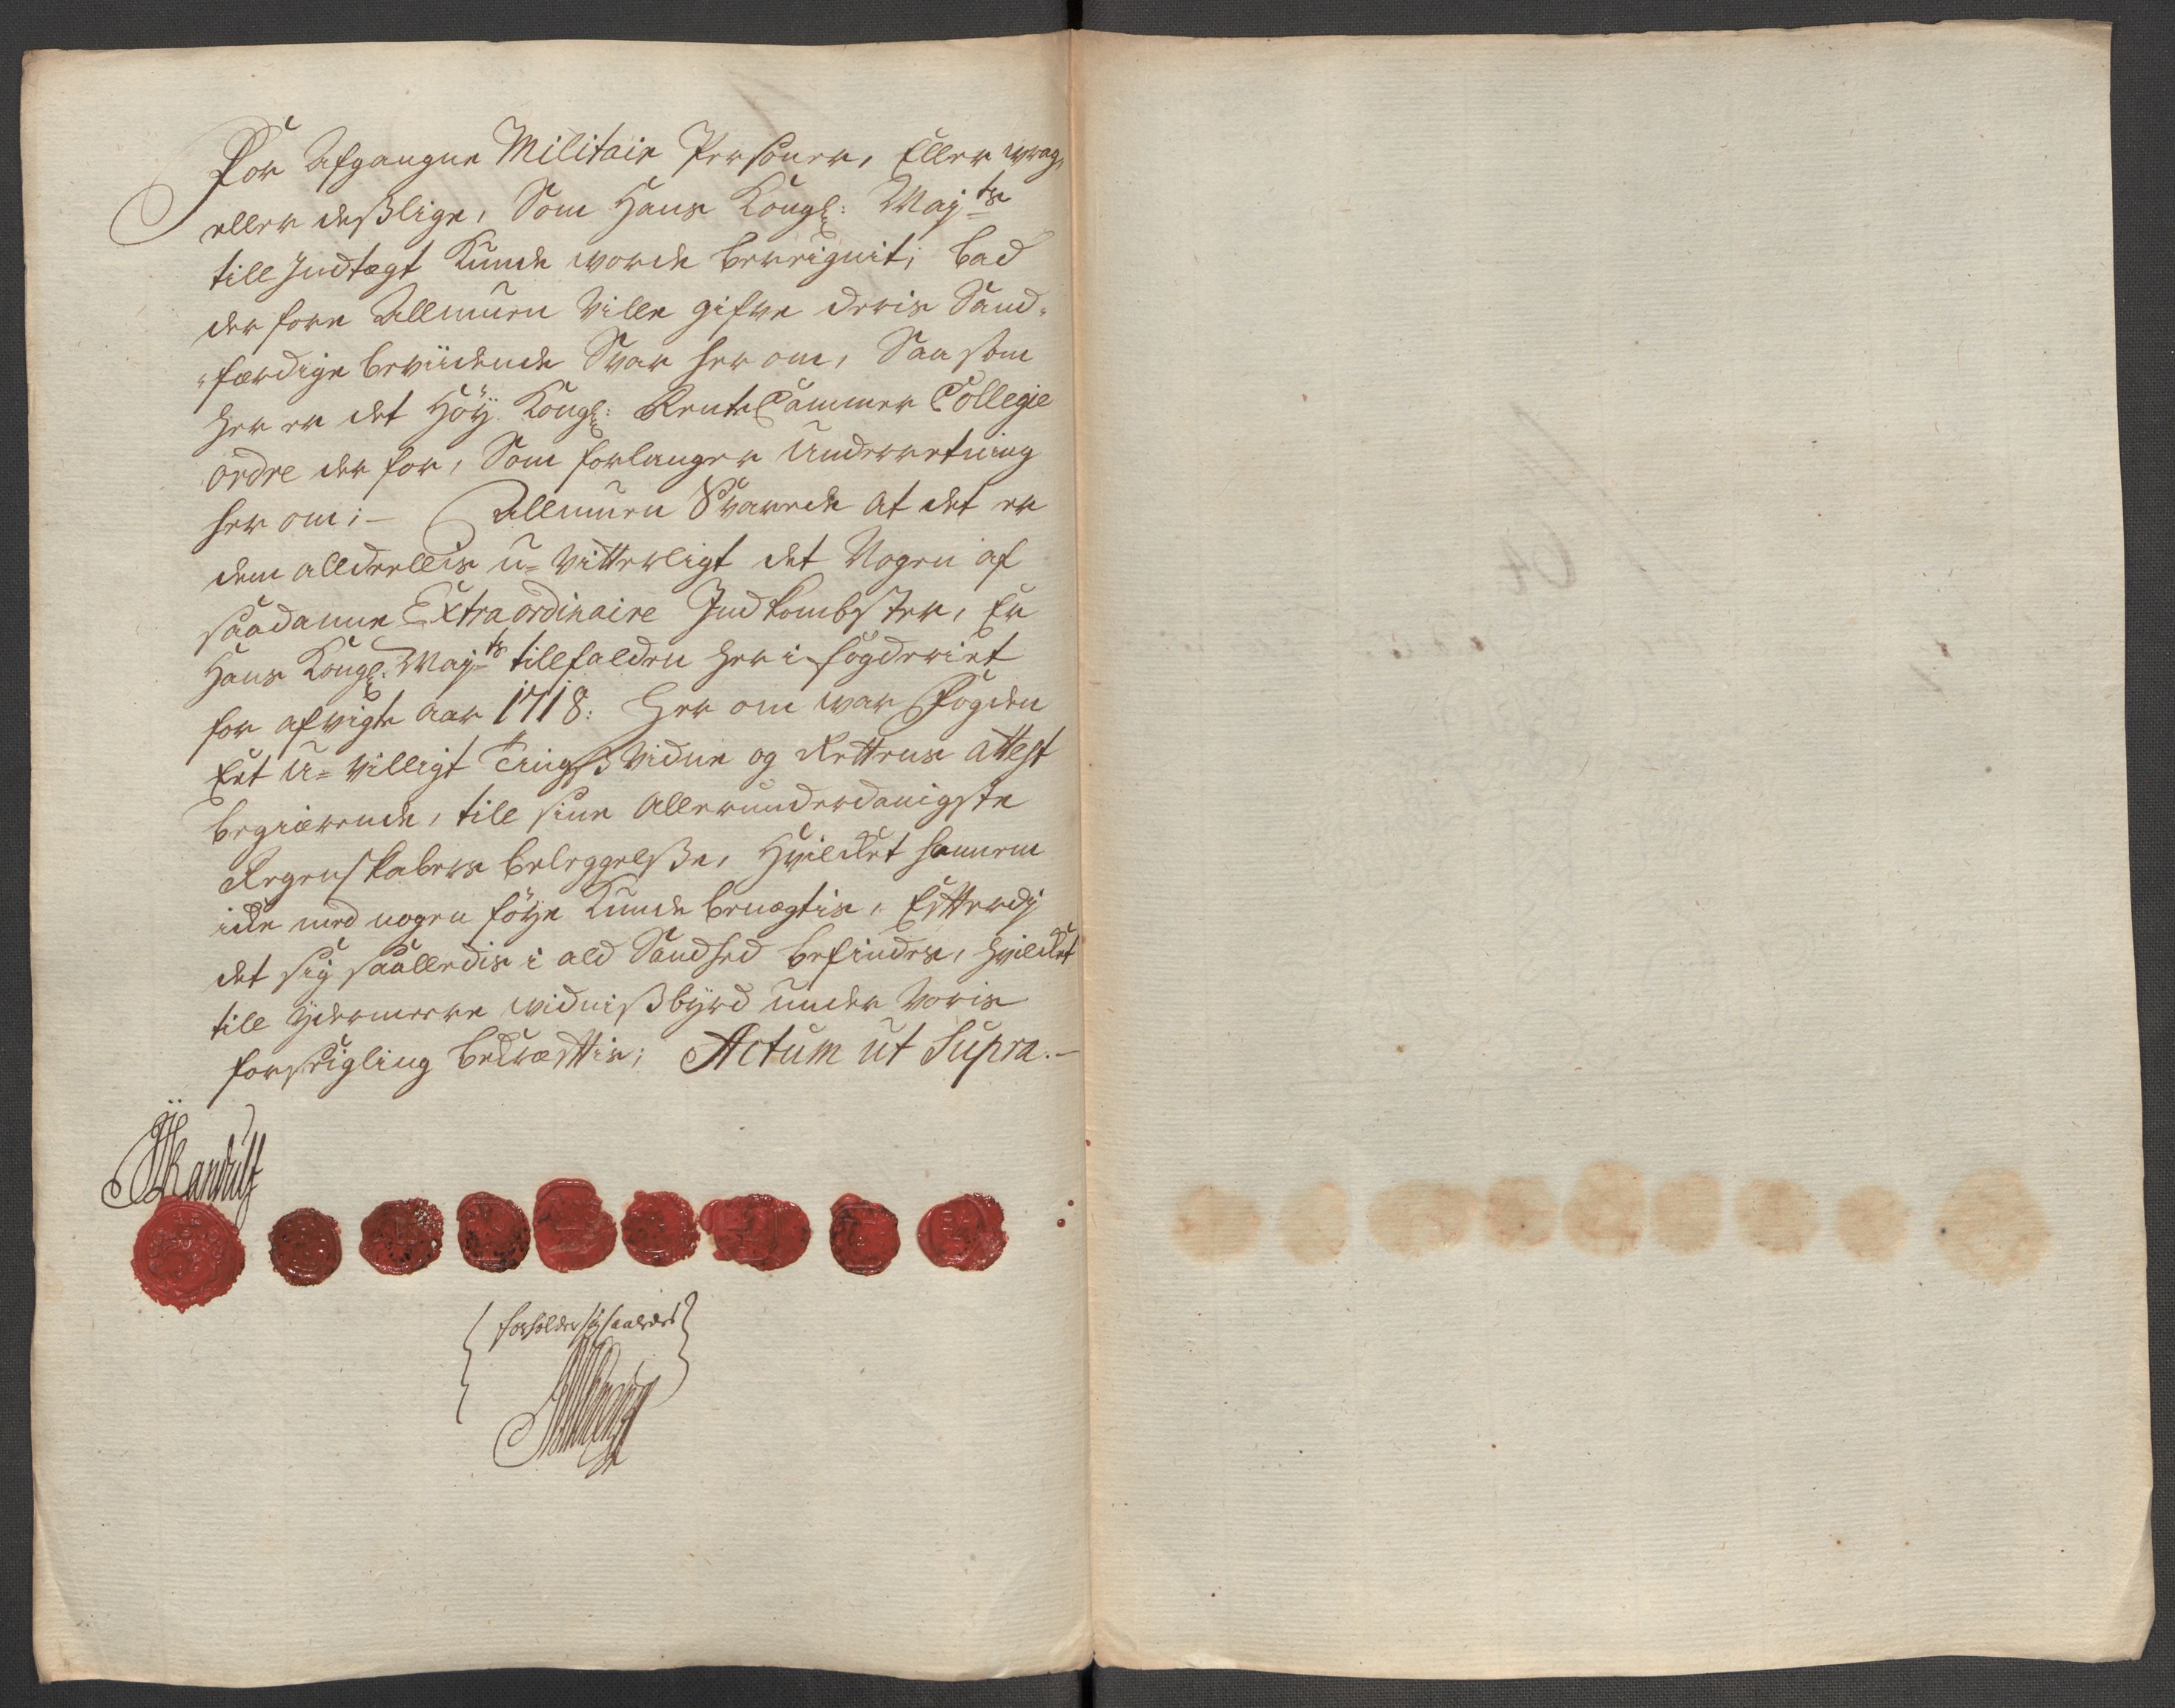 For Afgangne Militair Personer, Eller wrag,
eller deßlige, Som Hans Kongl: Maj:ts
till Indtægt kunde worde bereignit; bad
der fore Allmuen Ville gifve deris Sand-
færdige beviidende Svar her om, Saasom
her er det Höÿ Kongl: Rente Cammer Collegie
ordre der for, Som forlanger Underretning
her om; - Allmuen Svarede at det er
dem alldeellis u-vitterligt det Nogen af
saadanne Extraordinaire Indkombster, Er
Hans Kongl: Maj:ts tillfalden her i fogderiet
for afvigte Aar 1718: Her om war Fogden
Eet U-villigt Tingß Vidne og Rettens Attest
begiærende, till sine Allerunderdanigste
Regenskabers beleggelße, Hvilcket hannem
icke med nogen föÿe kunde benægtis, Efterdj
det sig saalledis i ald Sandhed befindes, hvilcket
till ÿdermeere widnißbÿrd under voris
forseigling bekræfftis; Actum ut Supra.-
Randulf
forholder sig saaledes